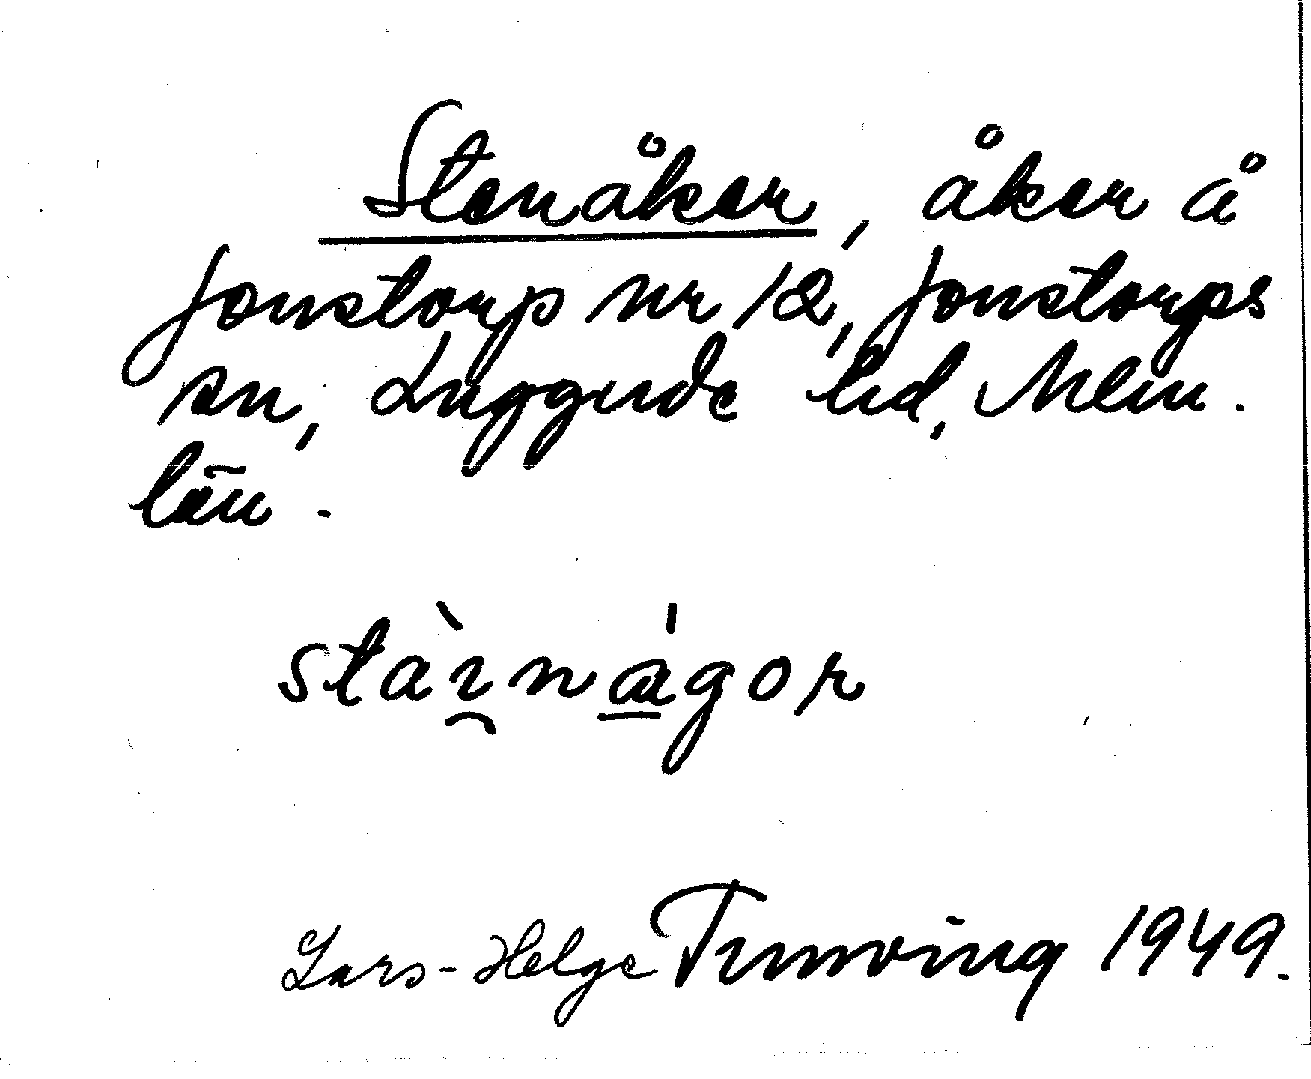 Stenåker, åker å
Jonstorp nr 12, Jonstorps
sn, Luggude hd, Mlm.
län.
stàı̯ná̲gor
Lars-Helge Tunving 1949.